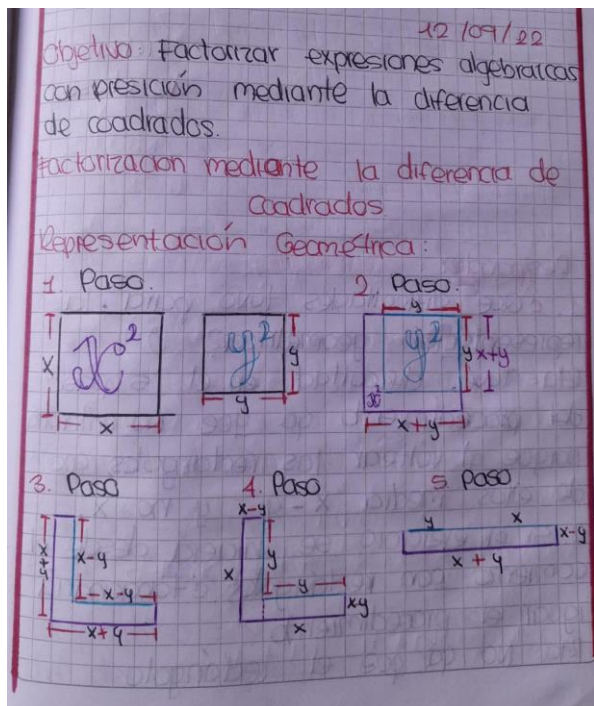 12/09/22
Objetivo: Factorizar expresiones algebraicas
con presición mediante la diferencia
de cuadrados.
Factorización mediante la diferencia de
cuadrados
Representación Geométrica:
1. Paso. 2. Paso.
y
x x² y² y y² y x+y
x²
x y x+y
3. Paso 4. Paso 5. Paso
x-y
x+y x-y x y y x x-y
x-y y x+y
xy
x+y x